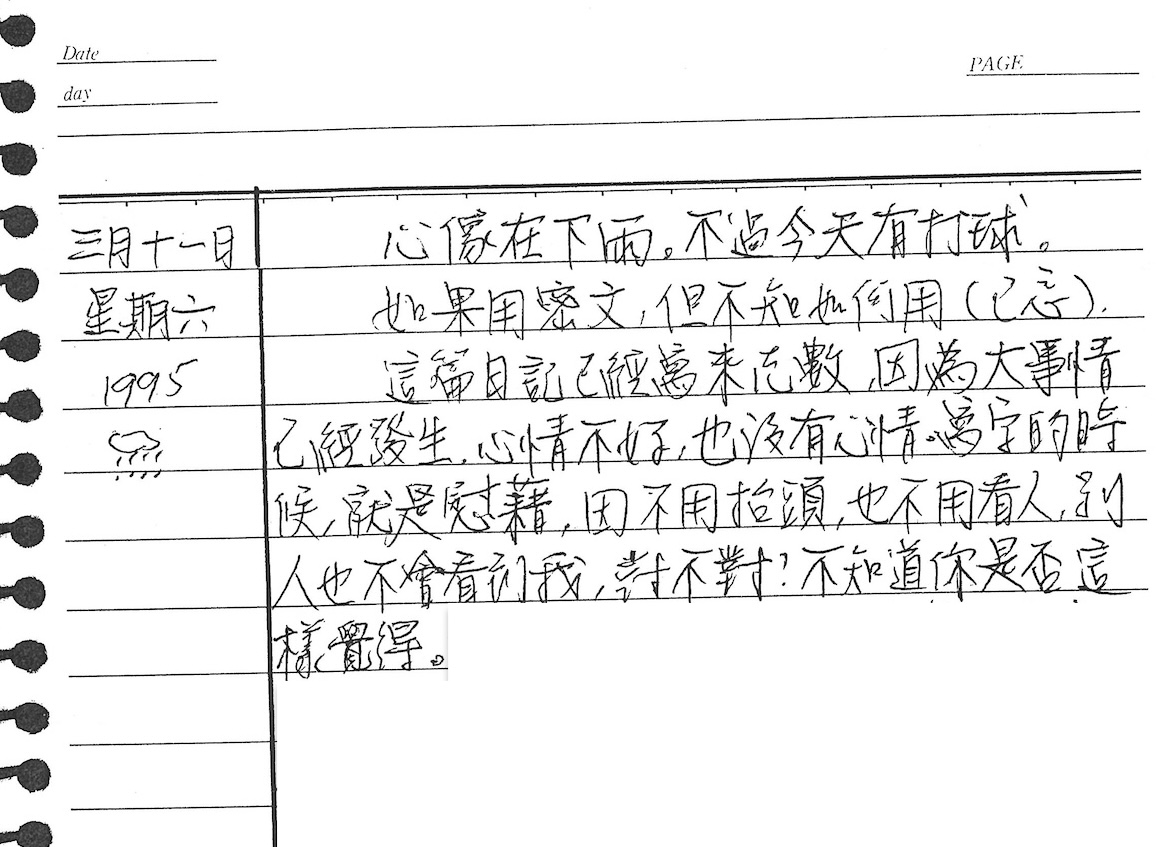 Date
day
PAGE
三月十一日
星期六
1995
心像在下雨。不過今天有打球。
如果用密文,但不知如何用(已忘).
這篇日記已經寫來充數,因為大事情
已經發生.心情不好,也沒有心情。寫字的時
候,就是慰藉,因不用抬頭,也不用看人,別
人也不會看到我,對不對?不知道你是否這
樣覺得。